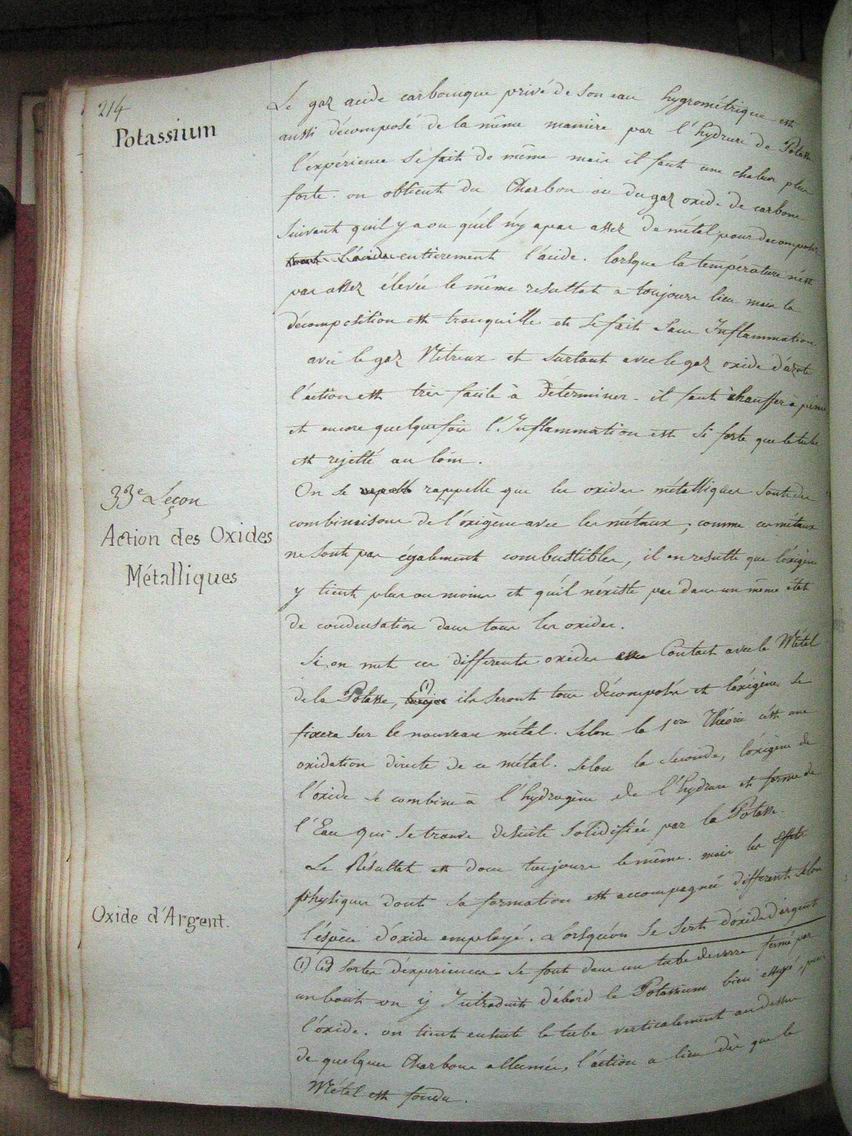 214
Potassium
Le gaz acide carbonique privé de son eau hygrométrique est
aussi décomposé de la même manière par l'hydrure de Potasse
l'expérience se fait de même mais il faut une chaleur plus
forte. on obtient du Charbon ou du gaz oxide de carbone
suivant qu'il y a ou qu'il n'y a pas assez de métal pour decomposer
l'acide entièrement l'acide. lorsque la température n'est
pas assez élevée le même resultat a toujours lieu mais la
décomposition est tranquille et se fait sans Inflammation
avec le gaz Nitreux et surtout avec le gaz oxide d'azote
l'action est très facile à Determiner. il faut chauffer a peine
et encore quelquefois l'Inflammation est si forte que le tube
est rejetté au loin.
33e Leçon
Action des Oxides
Métalliques
On se rappelle que les oxides métalliques sont des
combinaisons de l'oxigène avec les métaux; comme ces métaux
ne sont pas également combustibles, il en resulte que l'oxigène
y tient plus ou moins et qu'il n'existe pas dans un même état
de condensation dans tous les oxides.
Si on met ces différents oxides en Contact avec le Métal
de la Potasse, (1) ils seront tous décomposés et l'oxigène se
fixera sur le nouveau métal. Selon la 1ere Théorie c'est une
oxidation directe de ce métal. Selon la Seconde, l'oxigène de
l'oxide se combine à l'hydrogène de l'hydrure et forme de
l'Eau qui se trouve desuite Solidifiée par la Potasse.
Le Résultat est donc toujours le même. mais les effets
physiques dont sa formation est accompagnée différent selon
Oxide d'Argent.
l'espèce d'oxide employé. Lorsqu'on se sert d'oxide d'argent
(1) Ces sortes d'expériences se font dans un tube de verre fermé par
un bout on y Introduit d'abord le Potassium bien essuyé, puis
l'oxide. on tient ensuite le tube verticalement au dessus
de quelques Charbons allumés, l'action a lieu dès que le
Métal est fondu.